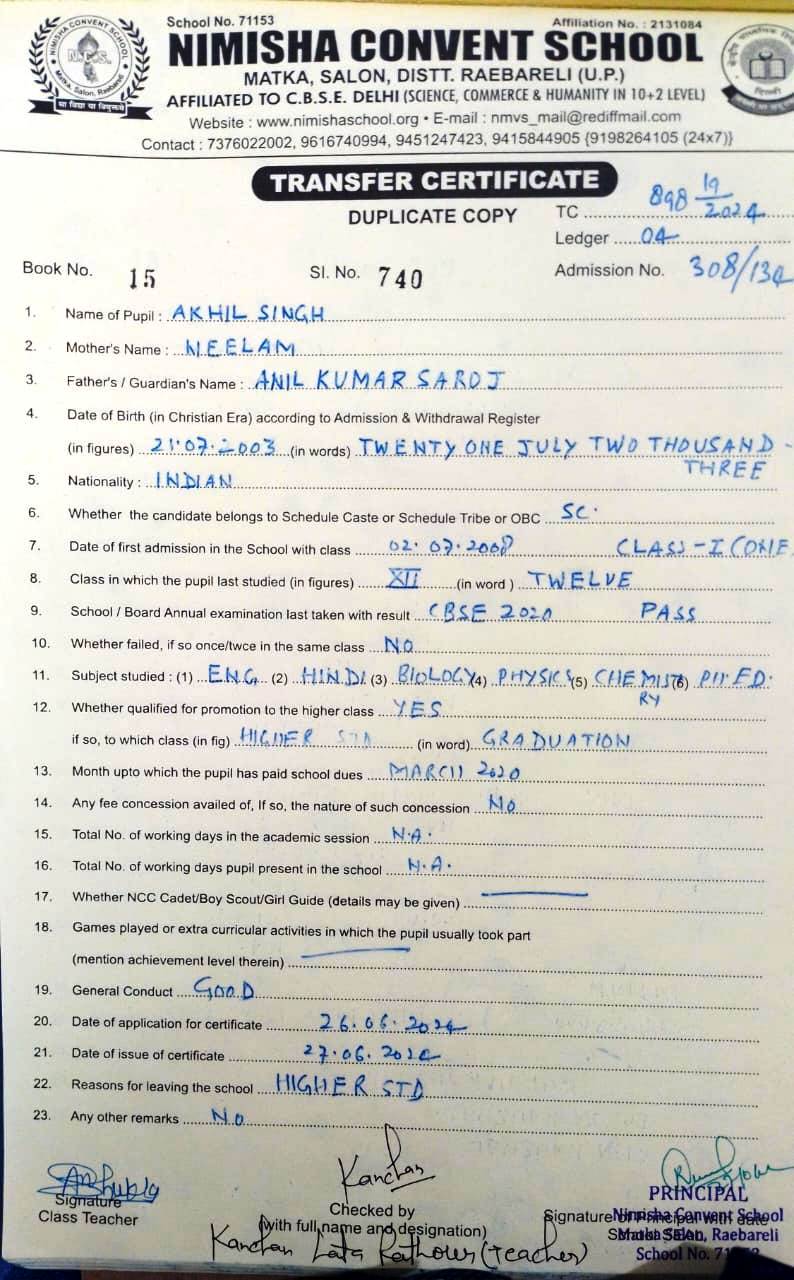 School No. 71153
Affiliation No. : 2131084
NIMISHA CONVENT SCHOOL
MATKA, SALON, DISTT. RAEBARELI (U.P.)
AFFILIATED TO C.B.S.E. DELHI (SCIENCE, COMMERCE & HUMANITY IN 10+2 LEVEL)
Website : www.nimishaschool.org • E-mail : nmvs_mail@rediffmail.com
Contact : 7376022002, 9616740994, 9451247423, 9415844905 {9198264105 (24x7)}
NIMISHA CONVENT SCHOOL
Matka, Salon, Raebareli
सा विद्या या विमुक्तये
TRANSFER CERTIFICATE
DUPLICATE COPY
TC 898 19/2024
Ledger 04
Book No. 15 Sl. No. 740 Admission No. 308/134
1. Name of Pupil : AKHIL SINGH
2. Mother's Name : NEELAM
3. Father's / Guardian's Name : ANIL KUMAR SAROJ
4. Date of Birth (in Christian Era) according to Admission & Withdrawal Register
(in figures) 21.07.2003 (in words) TWENTY ONE JULY TWO THOUSAND -
THREE
5. Nationality : INDIAN
6. Whether the candidate belongs to Schedule Caste or Schedule Tribe or OBC SC.
7. Date of first admission in the School with class 02.07.2008 CLASS-I (ONE
8. Class in which the pupil last studied (in figures) XII (in word ) TWELVE
9. School / Board Annual examination last taken with result CBSE 2020 PASS
10. Whether failed, if so once/twce in the same class NO
11. Subject studied : (1) ENG. (2) HINDI (3) BIOLOGY (4) PHYSICS (5) CHEMISTRY (6) PH.ED.
12. Whether qualified for promotion to the higher class YES
if so, to which class (in fig) HIGHER STD (in word) GRADUATION
13. Month upto which the pupil has paid school dues MARCH 2020
14. Any fee concession availed of, If so, the nature of such concession NO
15. Total No. of working days in the academic session N.A.
16. Total No. of working days pupil present in the school N.A.
17. Whether NCC Cadet/Boy Scout/Girl Guide (details may be given)
18. Games played or extra curricular activities in which the pupil usually took part
(mention achievement level therein)
19. General Conduct GOOD
20. Date of application for certificate 26.06.2024
21. Date of issue of certificate 27.06.2024
22. Reasons for leaving the school HIGHER STD
23. Any other remarks NO
Kanchan
Signature
Class Teacher
Checked by
(with full name and designation)
Kanchan Lata Rathour (Teacher)
Signature of Principal with date
PRINCIPAL
Nimisha Convent School
Matka Salon, Raebareli
School No. 71153